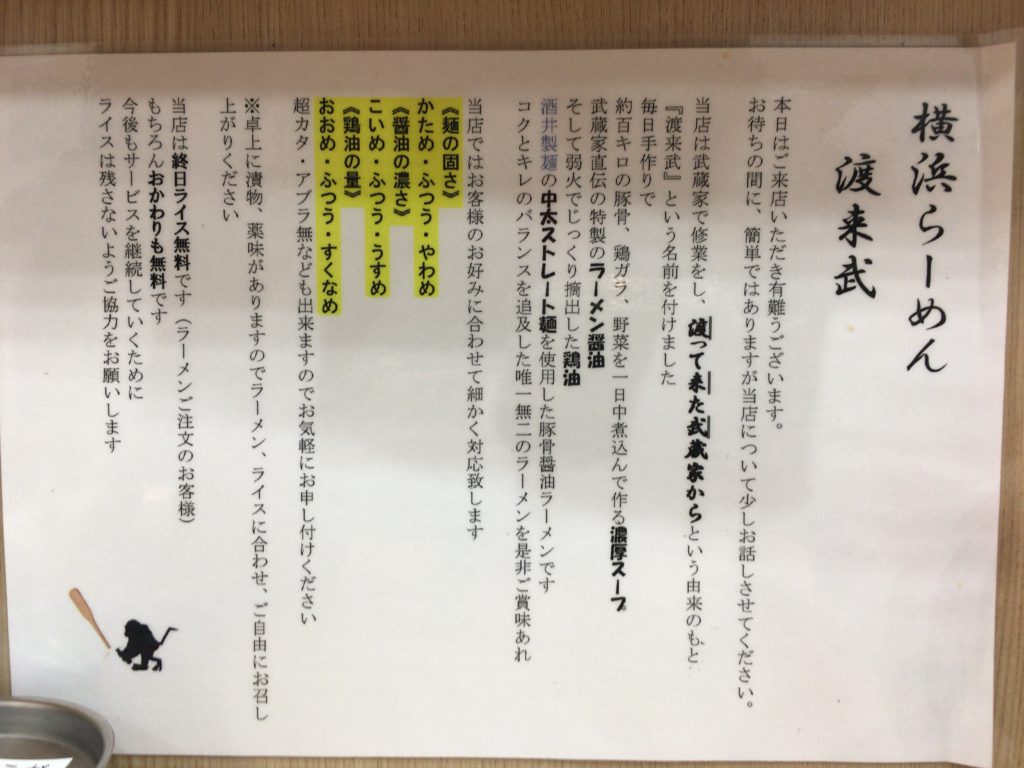 横浜らーめん
渡来武
本日はご来店いただき有難うございます。
お待ちの間に、簡単ではありますが当店について少しお話しさせてください。
当店は武蔵家で修業をし、渡って来た武蔵家からという由来のもと
『渡来武』という名前を付けました
毎日手作りで
約百キロの豚骨、鶏ガラ、野菜を一日中煮込んで作る濃厚スープ
武蔵家直伝の特製のラーメン醤油
そして弱火でじっくり摘出した鶏油
酒井製麺の中太ストレート麺を使用した豚骨醤油ラーメンです
コクとキレのバランスを追及した唯一無二のラーメンを是非ご賞味あれ
当店ではお客様のお好みに合わせて細かく対応致します
《麺の固さ》
かため・ふつう・やわめ
《醤油の濃さ》
こいめ・ふつう・うすめ
《鶏油の量》
おおめ・ふつう・すくなめ
超カタ・アブラ無なども出来ますのでお気軽にお申し付けください
※卓上に漬物、薬味がありますのでラーメン、ライスに合わせ、ご自由にお召し
上がりください
当店は終日ライス無料です（ラーメンご注文のお客様）
もちろんおかわりも無料です
今後もサービスを継続していくために
ライスは残さないようご協力をお願いします